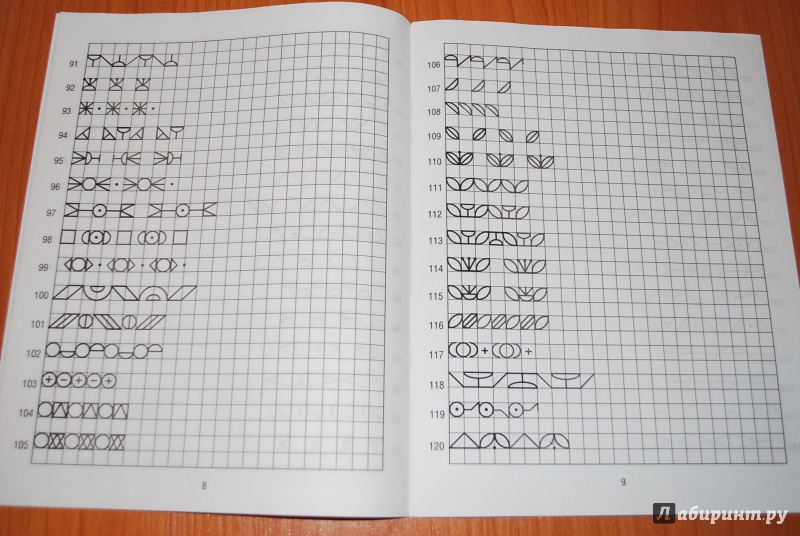 91
92
93
94
95
96
97
98
99
100
101
102
103
104
105
8
106
107
108
109
110
111
112
113
114
115
116
117
118
119
120
9
Лабиринт.ру